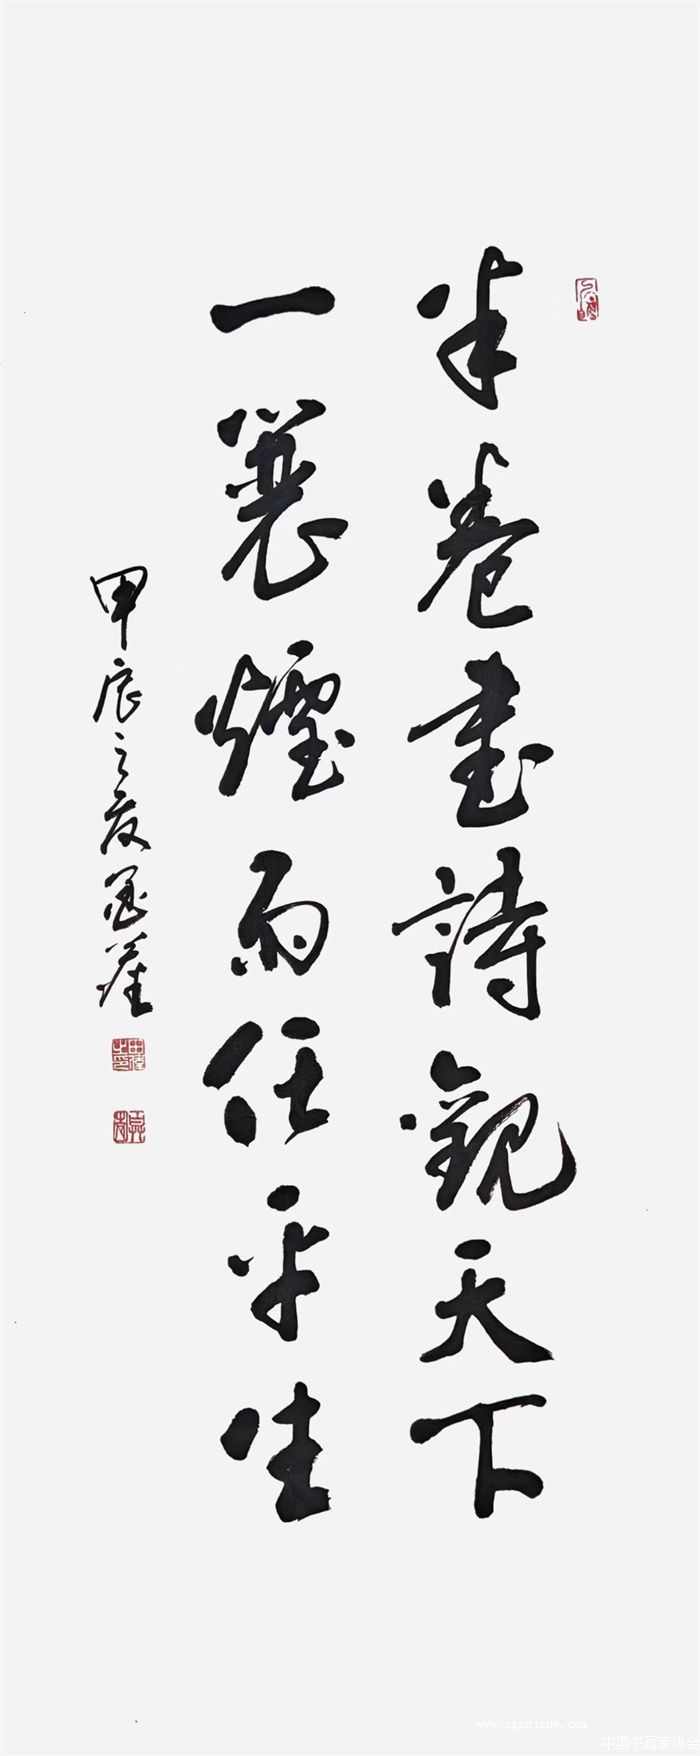 半卷書詩觀天下
一蓑煙雨任平生
甲辰之夏
www.zgshjxhw.com
中国书画家协会